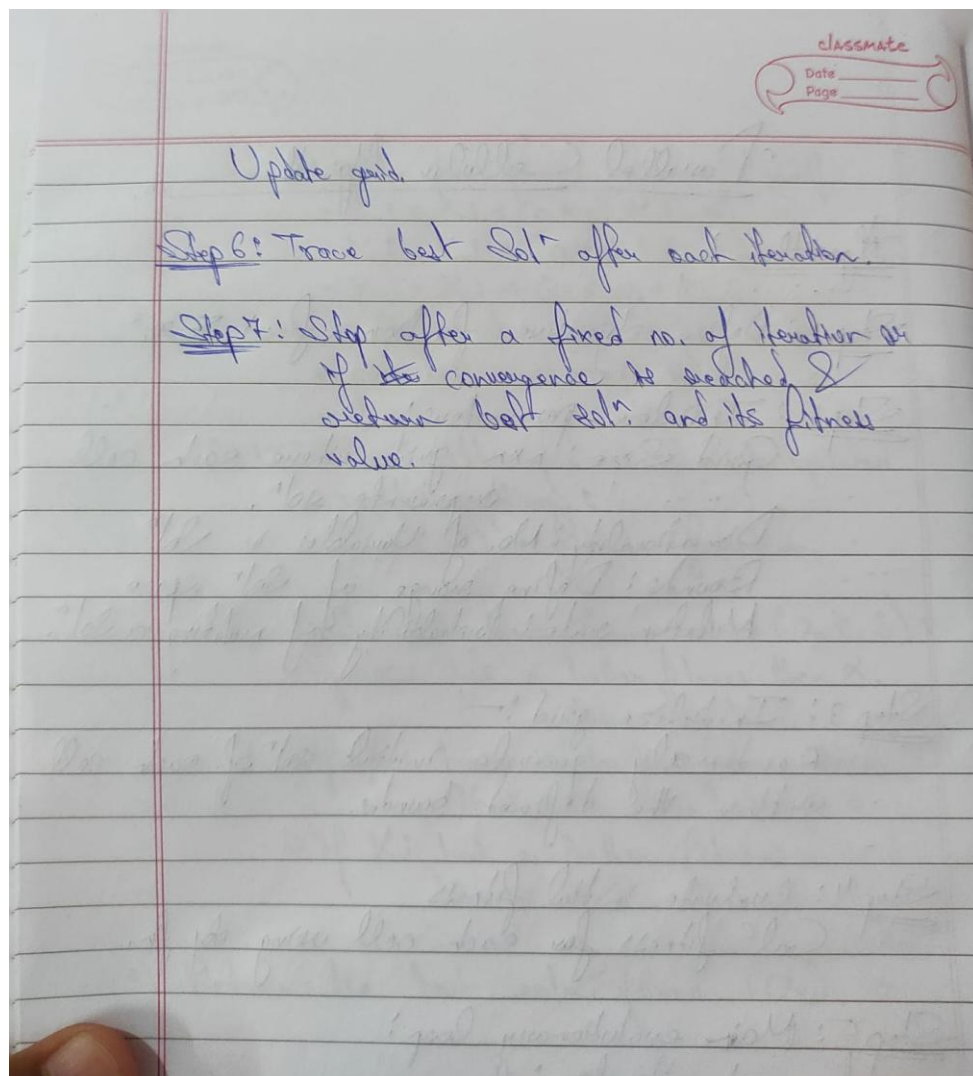 classmate
Date
Page
Update grid.
Step 6: Trace best Solⁿ after each iteration.
Step 7: Stop after a fixed no. of iteration or
if convergence is reached &
return best solⁿ. and its fitness
value.